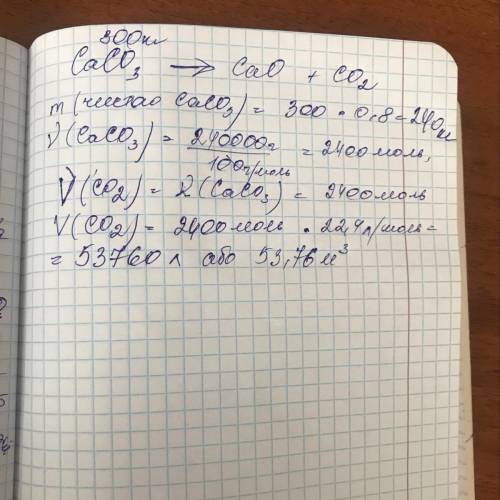 300кг
CaCO₃ → CaO + CO₂
m (чистого CaCO₃) = 300 · 0,8 = 240кг
ν (CaCO₃) = 240000г / 100г/моль = 2400 моль,
ν (CO₂) = ν (CaCO₃) = 2400 моль
V (CO₂) = 2400 моль · 22,4 л/моль =
= 53760 л або 53,76 м³